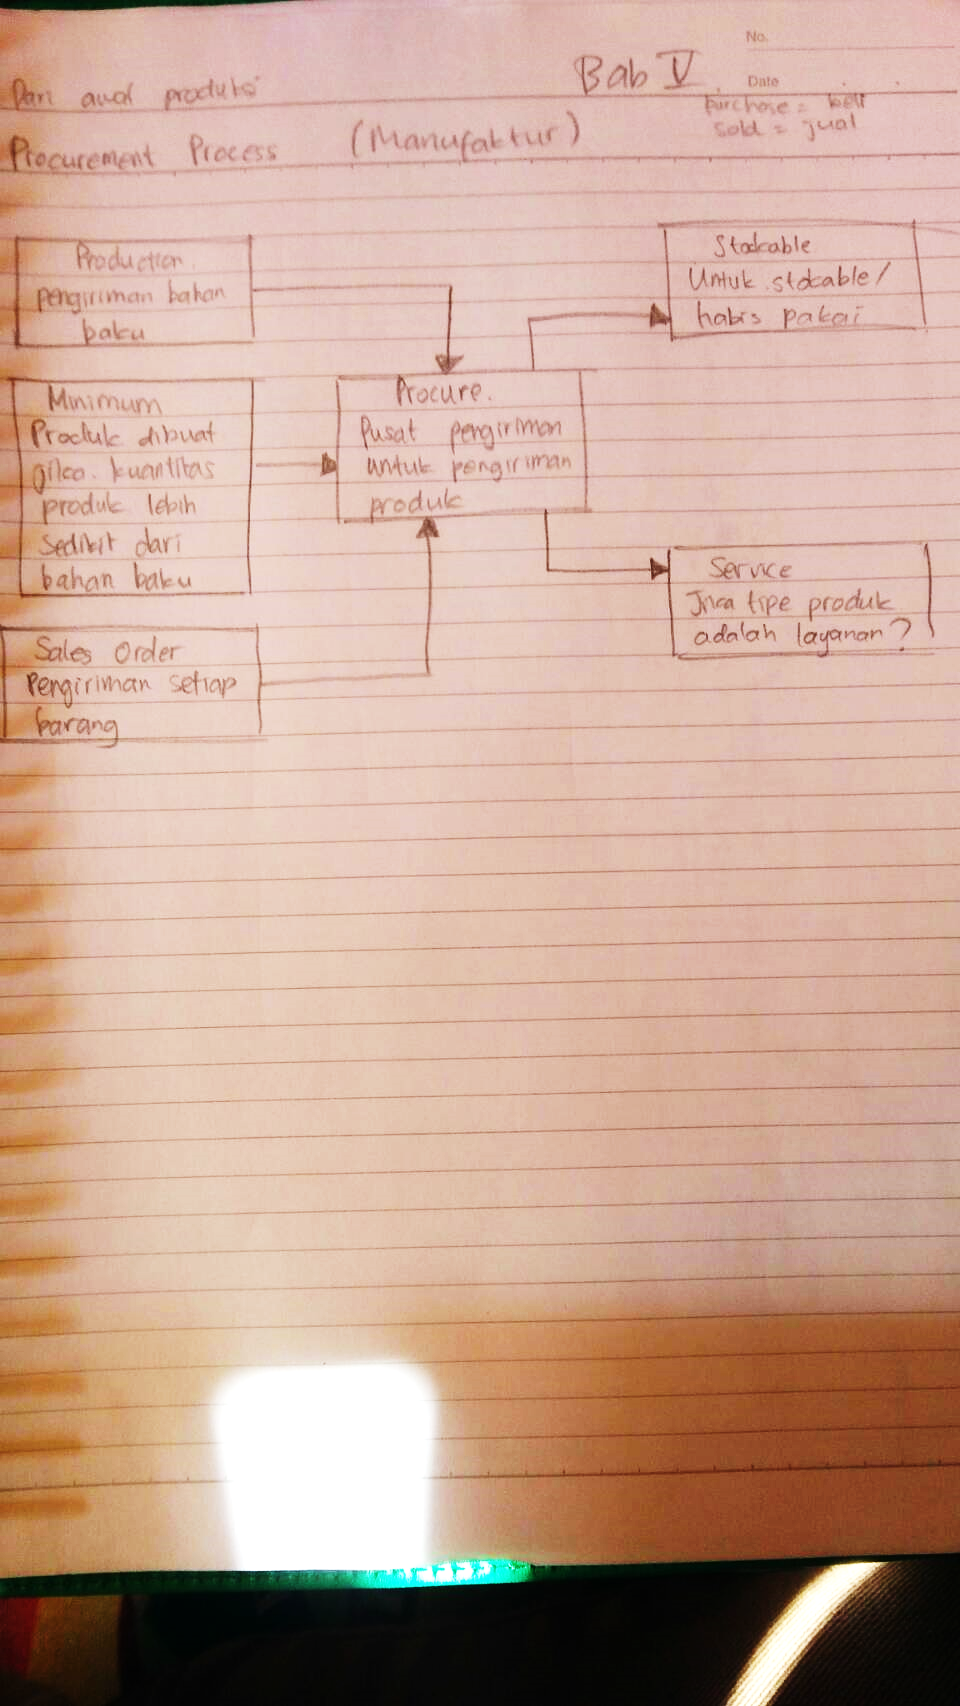 No.
Bab V
Date
Dari awal produksi
purchase = beli
sold = jual
Procurement Process (Manufaktur)
Production
pengiriman bahan
baku
Minimum
Produk dibuat
kuantitas
produk lebih
Sedikit dari
bahan baku
Sales Order
Pengiriman setiap
barang
Procure.
Pusat pengiriman
untuk pengiriman
produk
Stockable
Untuk stokable/
habis pakai
Service
Jika tipe produk
adalah layanan?